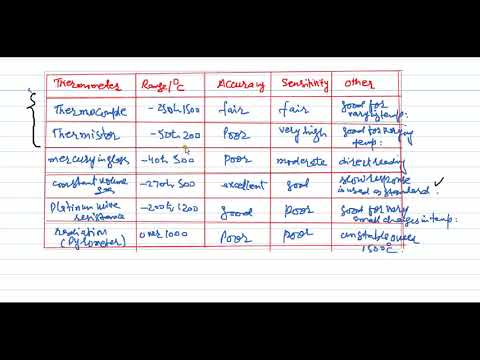 Thermometer Range/°C Accuracy Sensitivity other
Thermocouple -250 to 1500 fair fair good for varying temp:
Thermistor -50 to 200 Poor very high good for varying temp:
mercury in glass -40 to 300 Poor moderate direct reading
constant volume gas -270 to 500 excellent good slow response in used as standard. ✓
Platinum wire resistance -200 to 1200 good Poor good for very small changes in temp:
radiation (Pyrometer) over 1000 Poor Poor unstable over 1500°C.